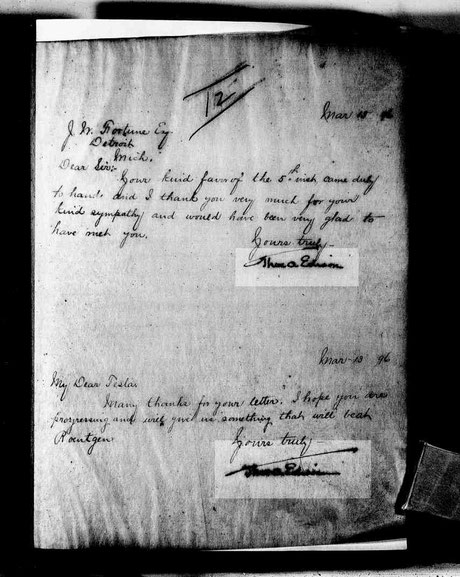 12
Mar 13 96
J. W. Fortune Esq
Detroit
Mich.
Dear Sir:-
Your kind favor of the 5th inst came duly
to hand and I thank you very much for your
kind sympathy and would have been very glad to
have met you.
Yours truly-
Thos A Edison
Mar-13 96
My Dear Tesla,
Many thanks for your letter. I hope you are
progressing and will give us something that will beat
Roentgen
Yours truly-
Thos A Edison